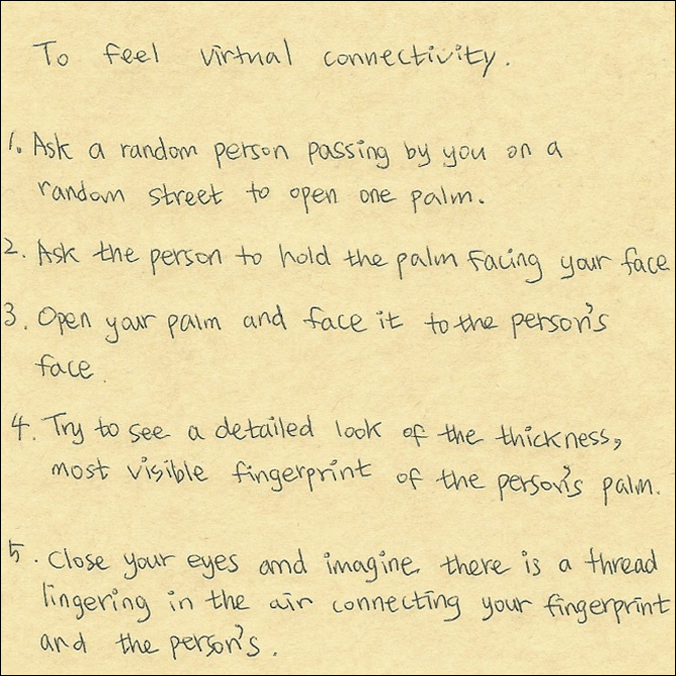 To feel virtual connectivity.
1. Ask a random person passing by you on a
random street to open one palm.
2. Ask the person to hold the palm facing your face
3. Open your palm and face it to the person's
face.
4. Try to see a detailed look of the thickness,
most visible fingerprint of the person's palm.
5. Close your eyes and imagine there is a thread
lingering in the air connecting your fingerprint
and the person's.